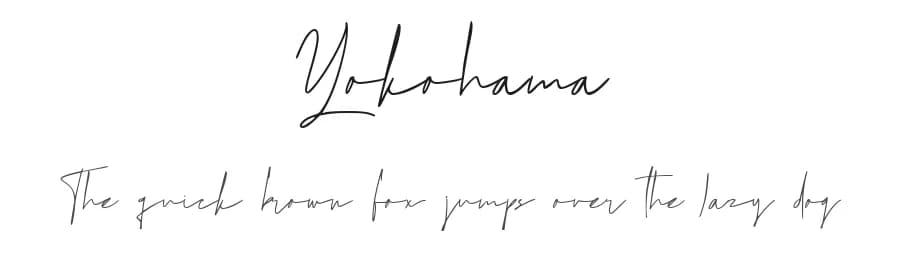 Yokohama
The quick brown fox jumps over the lazy dog